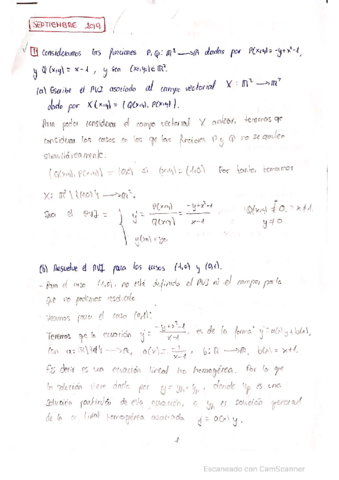 SEPTIEMBRE 2019
1 Consideramos las funciones P, Q: ℝ² → ℝ dadas por P(x,y) = -y+x²-1,
y Q(x,y) = x-1, y sea (x₀,y₀) ∈ ℝ².
(a) Escribe el PVI asociado al campo vectorial X: ℝ² → ℝ²
dado por X(x,y) = (Q(x,y), P(x,y)).
Para poder considerar el campo vectorial X tenemos que
considerar los casos en los que las funciones P y Q no se anulen
simultáneamente.
(Q(x,y), P(x,y)) = (0,0) si (x,y) = (1,0) Por tanto, tenemos
X: ℝ² \ {(1,0)} → ℝ².
el PVI = { y' = P(x,y)/Q(x,y) = (-y+x²-1)/(x-1) Q(x,y) ≠ 0, x ≠ 1.
y ≠ 0
y(x₀) = y₀.
(b) Resuelve el PVI para los casos (1,0) y (0,1).
- Para el caso (1,0), no está definido el PVI ni el campo, por lo
que no podemos resolverlo
Veamos para el caso (0,1):
Tenemos que la ecuación y' = (-y+x²-1)/(x-1) es de la forma y' = a(x)y + b(x),
con a: ℝ\{1} → ℝ, a(x) = -1/(x-1), b: ℝ → ℝ, b(x) = x+1.
Es decir es una ecuación lineal no homogénea. Por lo que
la solución viene dada por y = yₕ + yₚ, donde yₚ es una
solución particular de esta ecuación, e yₕ es solución general
de la ec lineal homogénea asociada y' = a(x)y.
1
Escaneado con CamScanner